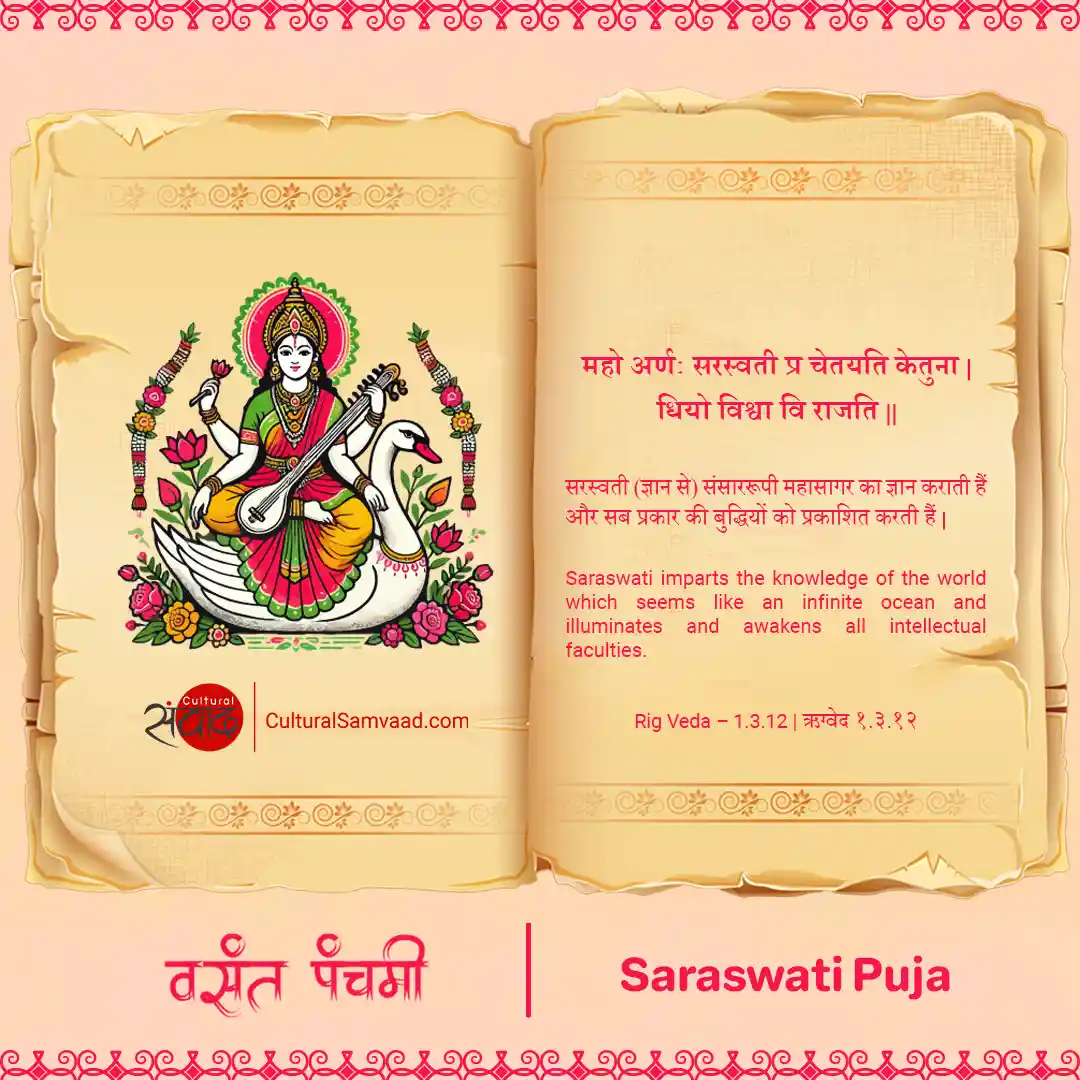 महो अर्णः सरस्वती प्र चेतयति केतुना |
धियो विश्वा वि राजति ||
सरस्वती (ज्ञान से) संसाररूपी महासागर का ज्ञान कराती हैं
और सब प्रकार की बुद्धियों को प्रकाशित करती हैं |
Saraswati imparts the knowledge of the world
which seems like an infinite ocean and
illuminates and awakens all intellectual
faculties.
Rig Veda – 1.3.12 | ऋग्वेद १.३.१२
Cultural
संवाद
CulturalSamvaad.com
वसंत पंचमी
Saraswati Puja